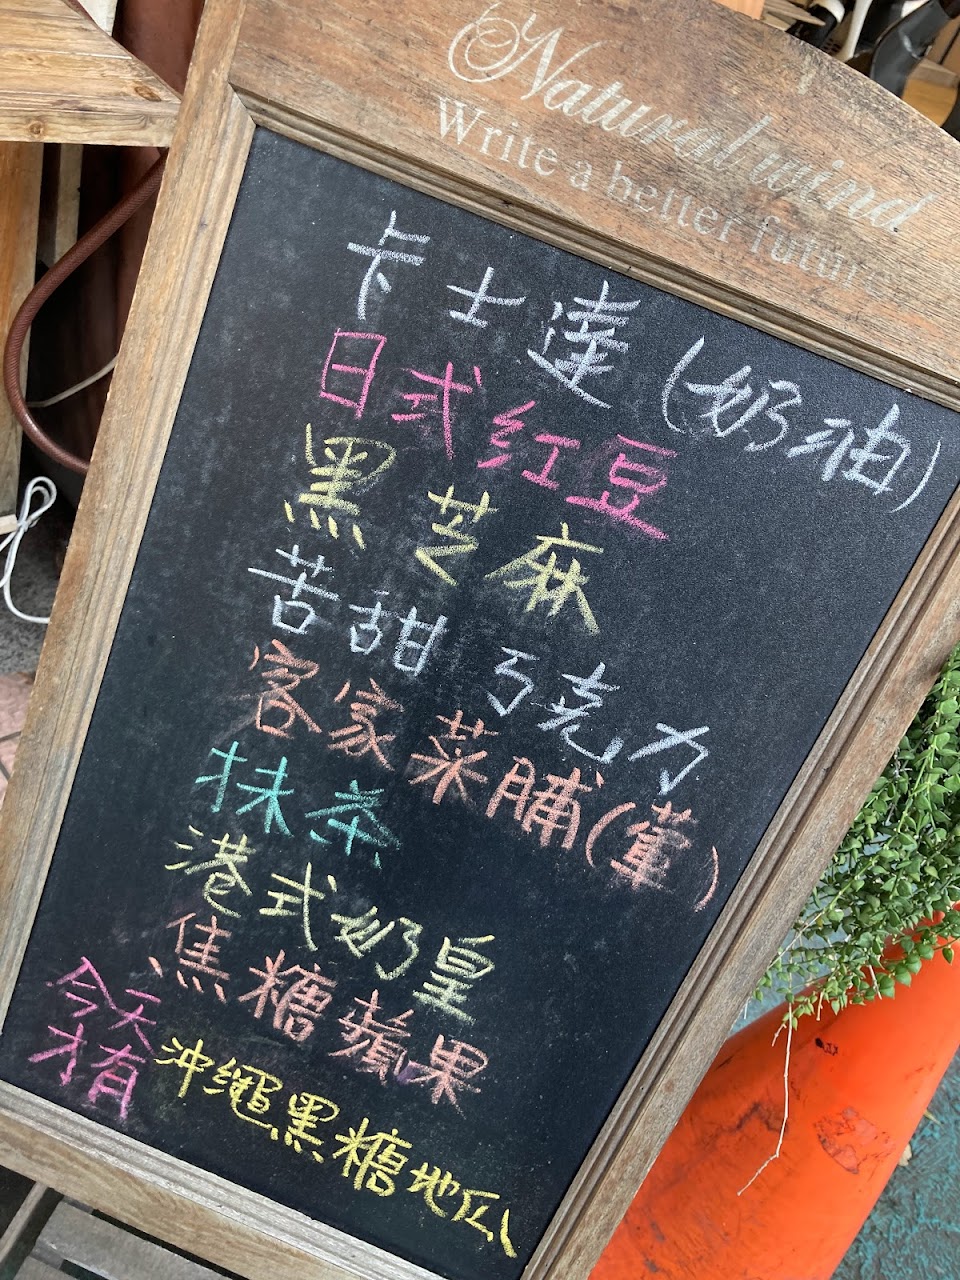 Natural wind
Write a better future
卡士達(奶油)
日式紅豆
黑芝麻
苦甜巧克力
客家菜脯(葷)
抹茶
港式奶皇
焦糖蘋果
今天
才有
沖繩黑糖地瓜